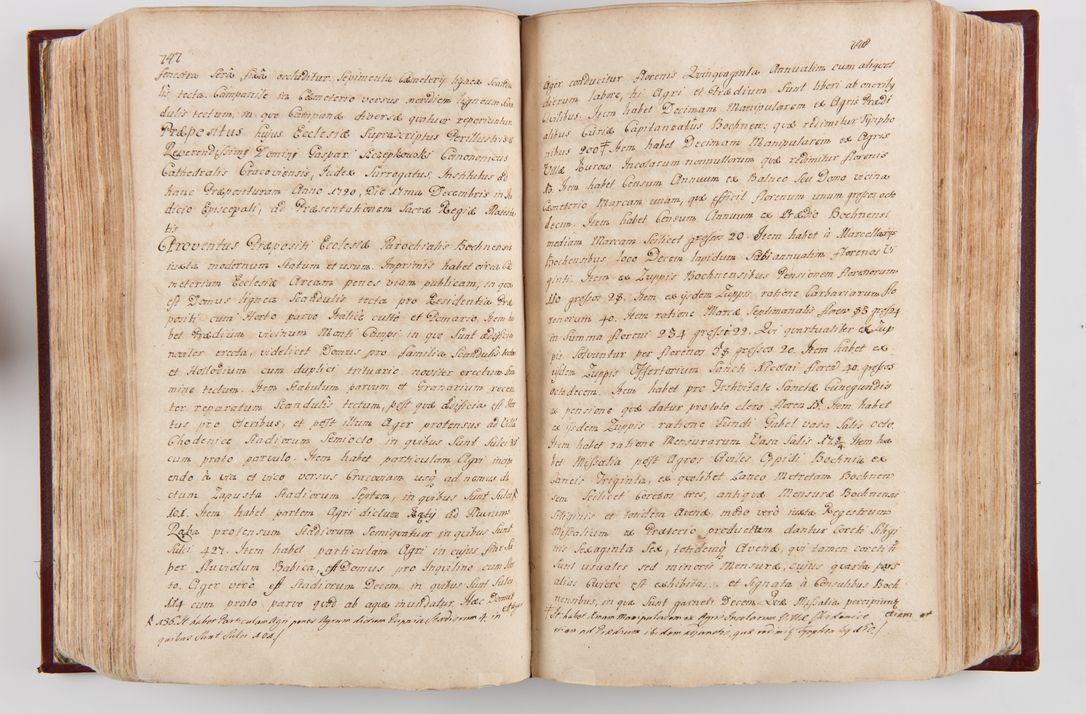 747
fenestra Serâ fixâ occluditur. Sepimenta Cæmeterij lignea Scandu
lis tecta. Campanile in Cæmeterio versus meridiem ligneum Scan
dulis tectum, in quo Campanæ diversæ quatuor reperiuntur.
Præpositus hujus Ecclesiæ Suprascriptus Perillustris &
Reverendissimus Dominus Gaspar Szczepkowski Canonicus
Cathedralis Cracoviensis, Judex Surrogatus, Institutus ad
hanc Præposituram Anno 1720, Die 17ma Decembris in Ju
dicio Episcopali, ad Præsentationem Sacræ Regiæ Majesta
tis
Proventus Præpositi Ecclesiæ Parochialis Bochnensis
juxta modernum Statum et usum. Imprimis habet circa Cæ
meterium Ecclesiæ Aream penes viam publicam, in qua
est Domus lignea Scandulis tecta pro Residentia Præ
positi cum Horto parvo Italicè culto et Pomario. Item ha
bet Prædium vicinum Monti Campi in quo Sunt ædificia
noviter erecta, videlicet Domus pro familia Scandulis tecta
et Hostodium cum duplici trituario noviter erectum Stra
mine tectum. Item Stabulum parvum et Granarium recen
ter reparatum Scandulis tectum, post quæ ædificia est Hor
tus pro Oleribus, et post illum Ager protensus ad Villam
Chodenice Stadiorum Semiocto in quibus Sunt Sulci
cum prato parvulo. Item habet particulam Agri inci
endo à via et vico versus Cracoviam usq ad nemus di
ctum Zapusta Stadiorum Septem, in quibus Sunt Sulci
101. Item habet partem Agri dictum ad fluvium
Raba protensum Stadiorum Semiquatuor in quibus Sunt
Sulci 427. Item habet particulam Agri in cujus fine Su
per fluviolum Babica est Domus pro Inquilino cum Hor
to, Ager verò est Stadiorum Decem in quibus Sunt Sulci
114 cum prato parvo quod ab aqua inundatur. Hæc Domus
et Ager
136. It habet Particulam Agri penes Agrum dictum Stadiorum 4. in
quibus Sunt Sulci 101./
748
Ager conducitur florenis Quinquaginta Annuatim cum aliquot
dierum labore, hi Agri et Prædium Sunt liberi ab oneribus
Civilibus. Item habet Decimam Manipularem ex Agris Prædi
alibus Curiæ Capitaneatûs Bochnen: quæ redimitur Typpho
nibus 200. Item habet Decimam Manipularem ex Agris
Villæ Kurow Incolarum nonnullorum quæ redimitur florenis
13. Item habet Censum Annuum ex Balneo Seu Domo vicina
Cæmeterio Marcam unam, quæ efficit florenum unum grossos octo
decim. Item habet Censum Annuum ex Prædio Bochnensi
mediam Marcam Scilicet grossos 20. Item habet à Marcellarijs
Bochensibus loco Decem lapidum Sabi annuatim florenos Vi
ginti. Item ex Zuppis Bochnensibus Pensionem florenorum
110 grossos 28. Item ex ijsdem Zuppis, ratione Carbariarum flo
renorum 40. Item ratione Marcæ Septimanalis floren 83 gross 1
in Summa floreni 234 grossi 29. Qui quartualiter ex Zup
pis Solvuntur per florenos 58 grossos 20. Item habet ex
ijsdem Zuppis Offertorium Sancti Nicolai floren 40. grossos
octodecem. Item habet pro Festivitate Sanctæ Cunegundis
ex pensione quæ datur pro toto clero floren 15. Item habet
ex ijsdem Zuppis ratione Fundi Gabel vasa Salis Octo,
Item habet ratione Mensurarum Vasa Salis 17. Item ha
bet Missalia post Agros Civiles Oppidi Bochnia ex
Laneis Triginta, ex quolibet Laneo Metretam Bochnen
sem Scilicet Coretos tres, antiquæ Mensuræ Bochnensi
Siliginis et totidem Avenæ, modo verò juxta Regestrum
Missalium ex Prætorio productum dantur Coreti Siligi
nis Sexaginta Sex, totidemq Avenæ, qui tamen Coreti
Sunt usuales sed minoris Mensuræ, cujus quarta pars
alias Cwierć est exhibita, et Signata à Consulibus Boch
nensibus, in qua Sunt garneti Decem. Quæ Missalia percipiunt
etiam et
It habet Xnam Manipularem ex Agris Incolarum Villæ Chodenice
item ad Prædium ibidem exhanetis, quæ redimit